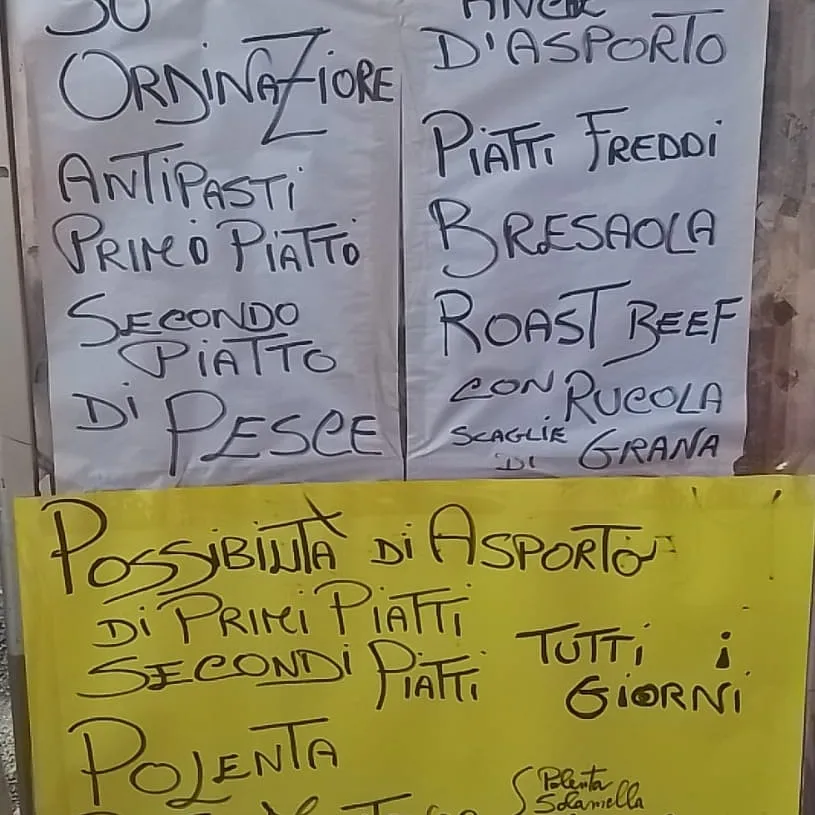 SU
ORDINAZIONE
ANTIPASTI
PRIMO PIATTO
SECONDO
PIATTO
DI PESCE
ANCHE
D'ASPORTO
PIATTI FREDDI
BRESAOLA
ROAST BEEF
CON RUCOLA
SCAGLIE
DI GRANA
POSSIBILITÀ DI ASPORTO
DI PRIMI PIATTI
SECONDI PIATTI
TUTTI i
GIORNI
POLENTA
Polenta
Salamella